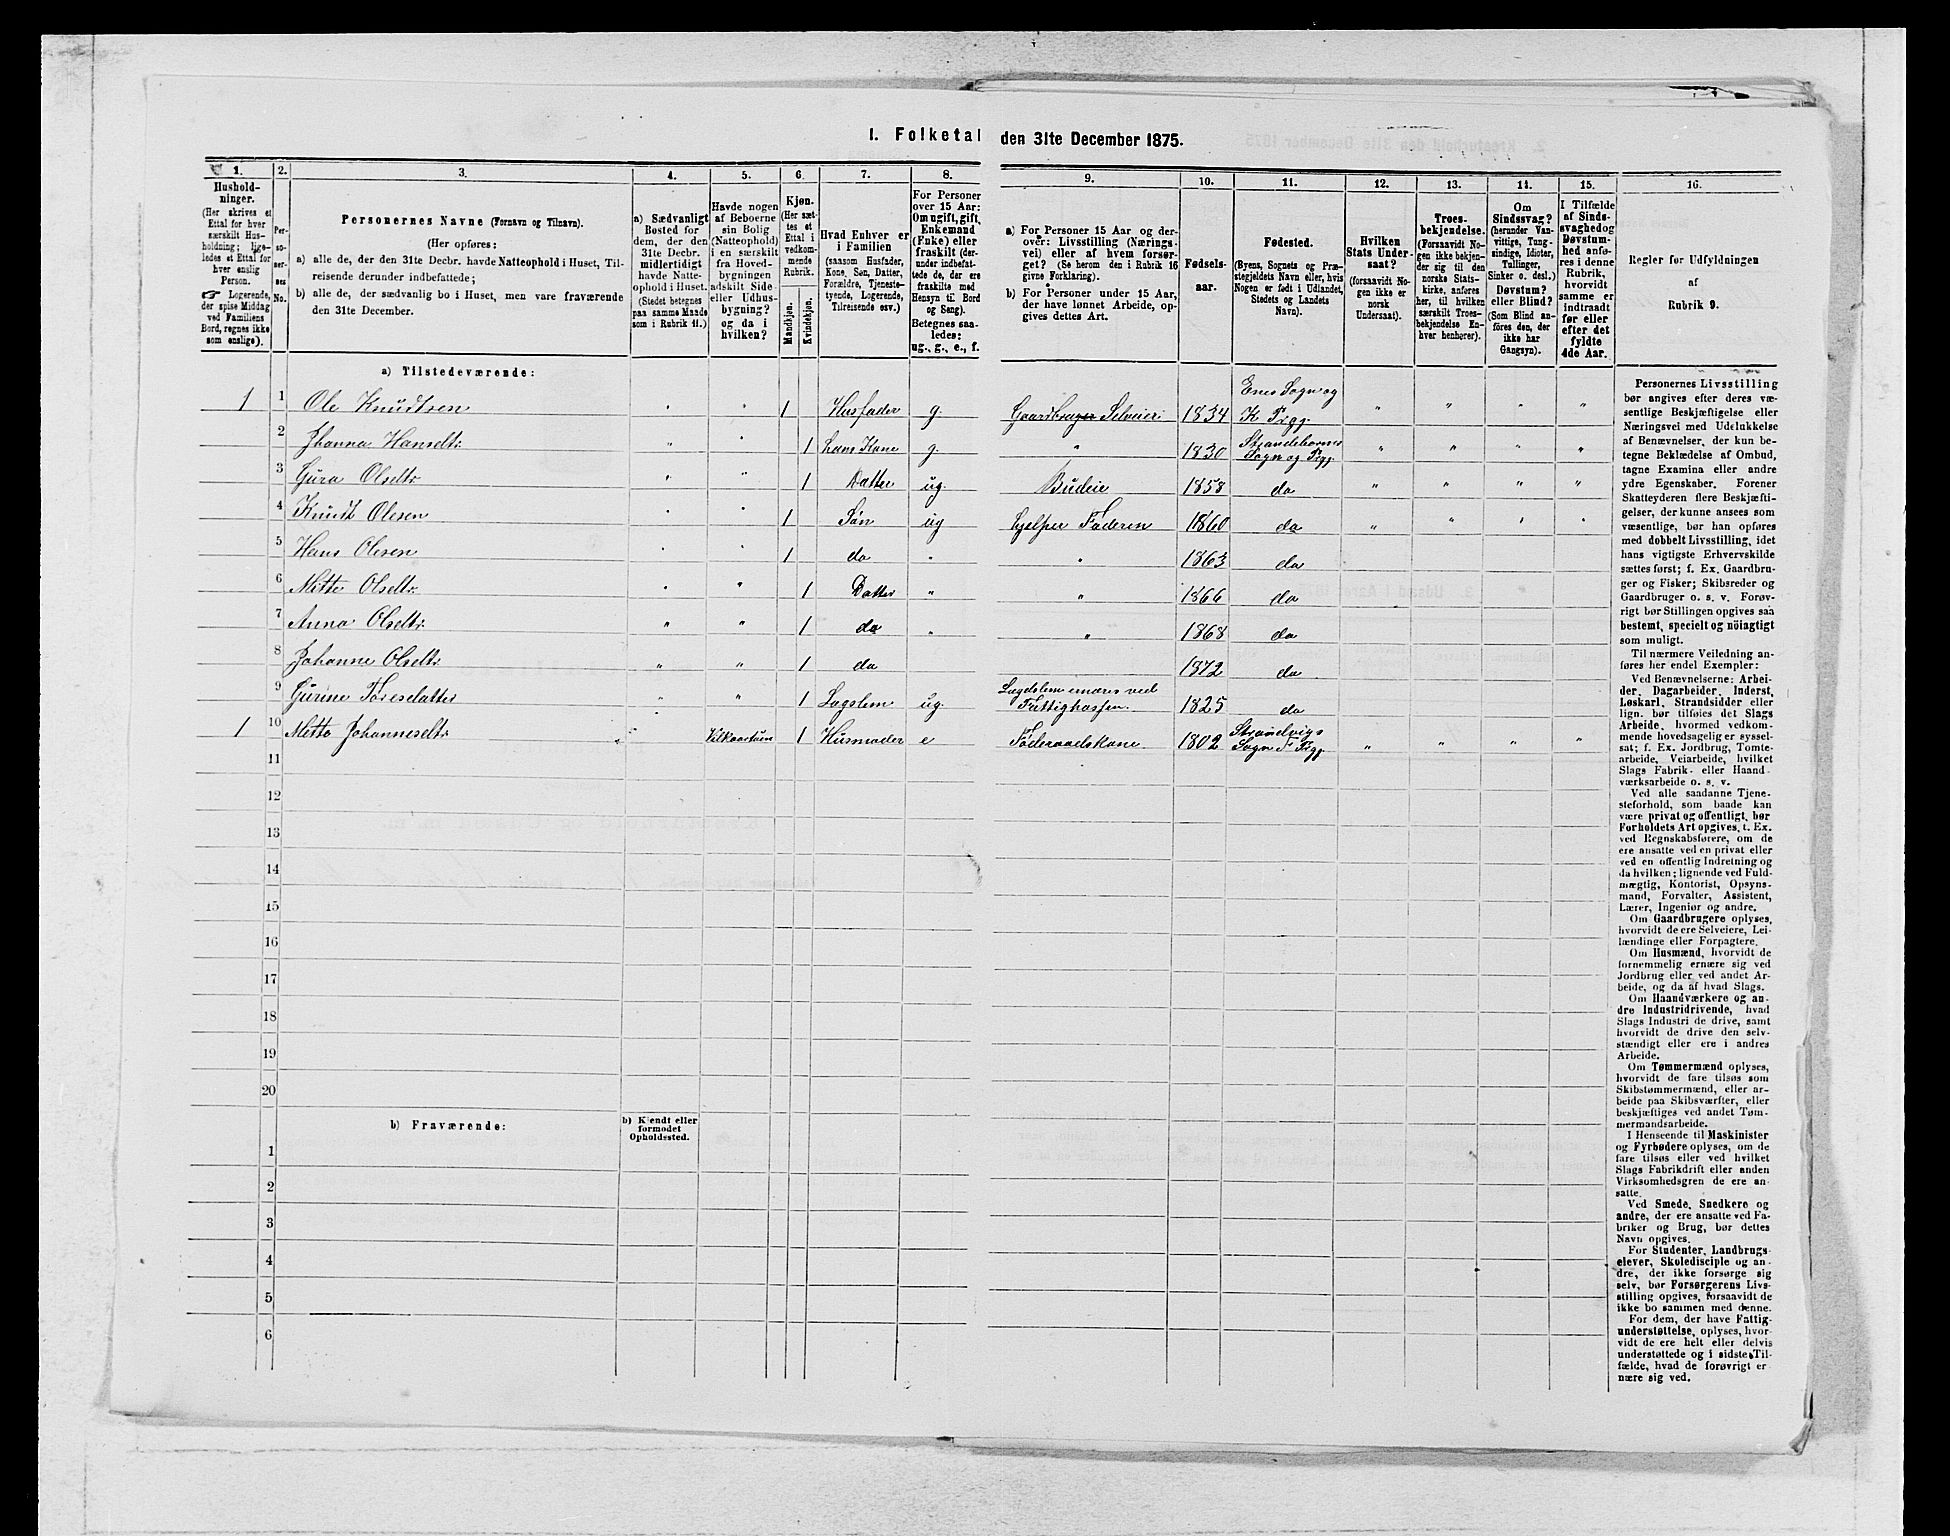 I. Folketal den 31te December 1875.
1. 2. 3. 4. 5. 6. 7. 8. 9. 10. 11. 12. 13. 14. 15. 16.
Hushold-
ninger.
(Her skrives et
Ettal for hver
særskilt Hus-
holdning; lige-
ledes et Ettal for
hver enslig
Person.
☞ Logerende,
der spise Middag
ved Familiens
Bord, regnes ikke
som enslige).
Per-
so-
ner-
nes
No.
Personernes Navne (Fornavn og Tilnavn).
(Her opføres:
a) alle de, der den 31te Decbr. havde Natteophold i Huset, Til-
reisende derunder indbefattede;
b) alle de, der sædvanlig bo i Huset, men vare fraværende
den 31te December.
a) Sædvanligt
Bosted for
dem, der den
31te Decbr.
midlertidigt
havde Natte-
ophold i Huset.
(Stedet betegnes
paa samme Maade
som i Rubrik 11.)
Havde nogen
af Beboerne
sin Bolig
(Natteophold)
i en særskilt
fra Hoved-
bygningen
adskilt Side-
eller Udhus-
bygning?
og da i
hvilken?
Kjøn.
(Her sæt-
tes et
Ettal i
vedkom-
mende
Rubrik.
Mandkjøn.
Kvindekjøn.
Hvad Enhver er
i Familien
(saasom Husfader,
Kone, Søn, Datter,
Forældre, Tjeneste-
tyende, Logerende,
Tilreisende osv.)
For Personer
over 15 Aar:
Om ugift, gift,
Enkemand
(Enke) eller
fraskilt (der-
under indbefat-
tede de, der ere
fraskilte med
Hensyn til Bord
og Seng).
Betegnes saa-
ledes:
ug., g., e., f.
a) For Personer 15 Aar og der-
over: Livsstilling (Nærings-
vei) eller af hvem forsør-
get? (Se herom den i Rubrik 16
givne Forklaring).
b) For Personer under 15 Aar,
der have lønnet Arbeide, op-
gives dettes Art.
Fødsels-
aar.
Fødested.
(Byens, Sognets og Præ-
stegjeldets Navn eller, hvis
Nogen er født i Udlandet,
Stedets og Landets
Navn).
Hvilken
Stats Under-
saat?
(forsaavidt No-
gen ikke er
norsk
Undersaat).
Troes-
bekjendelse.
(Forsaavidt No-
gen ikke bekjen-
der sig til den
norske Stats-
kirke, anføres
her, til hvilken
særskilt Troes-
bekjendelse En-
hver henhører).
Om
Sindssvag?
(herunder Van-
vittige, Tung-
sindige, Idioter,
Tullinger,
Sinker o. desl.)
Døvstum?
eller Blind?
(Som Blind an-
føres den, der
ikke har
Gangsyn).
I Tilfælde
af Sinds-
svaghed og
Døvstum-
hed anfø-
res i denne
Rubrik,
hvorvidt
samme er
indtraadt
før eller
efter det
fyldte
4de Aar.
Regler for Udfyldningen
af
Rubrik 9.
a) Tilstedeværende:
1 1 Ole Knudtsen " " 1 Husfader g. Gaardbruger Selveier 1834 Enes Sogn og K Prgj. " " " "
2 Johanna Hansdtr " " 1 hans Kone g. " 1830 Strandebarms Sogn og Prgj. " " " "
3 Gura Olsdtr " " 1 Datter ug. Budeie 1858 do " " " "
4 Knudt Olesen " " 1 Søn ug hjelper Faderen 1860 do " " " "
5 Hans Olesen " " 1 do " " 1863 do
6 Mette Olsdtr. " " 1 Datter " " 1866 do
7 Anna Olsdtr. " " 1 do " " 1868 do
8 Johanne Olsdtr " " 1 do 1872 do
9 Gurine Toresdatter " " 1 Lægslem ug. Lægdslem ernæres ved Fattigkassen. 1825 do
1 10 Mette Johannesdtr " 1 Husmoder e Føderaadskone 1802 Strandvigs Sogn F Prgj. " " " "
11
12
13
14
15
16
17
18
19
20
b) Fraværende:
b) Kjendt eller
formodet
Opholdssted.
1
2
3
4
5
6
Personernes Livsstilling
bør angives efter deres væ-
sentlige Beskjæftigelse eller
Næringsvei med Udelukkelse
af Benævnelser, der kun be-
tegne Beklædelse af Ombud,
tagne Examina eller andre
ydre Egenskaber. Forener
Skatteyderen flere Beskjæfti-
gelser, der kunne ansees som
væsentlige, bør han opføres
med dobbelt Livsstilling, idet
hans vigtigste Erhvervskilde
sættes først; f. Ex. Gaardbru-
ger og Fisker; Skibsreder og
Gaardbruger o. s. v. Forøv-
rigt bør Stillingen opgives saa
bestemt, specielt og nöiagtigt
som muligt.
Til nærmere Veiledning an-
føres her endel Exempler:
Ved Benævnelserne: Arbei-
der, Dagarbeider, Inderst,
Løskarl, Strandsidder eller
lign. bør tilføies det Slags
Arbeide, hvormed vedkom-
mende hovedsagelig er syssel-
sat; f. Ex. Jordbrug, Tomte-
arbeide, Veiarbeide, hvilket
Slags Fabrik- eller Haand-
værksarbeide o. s. v.
Ved alle saadanne Tjene-
steforhold, som baade kan
være privat og offentligt, bør
Forholdets Art opgives, t. Ex.
ved Regnskabsførere, om de
ere ansatte ved en privat eller
ved en offentlig Indretning og
da hvilken; lignende ved Fuld-
mægtig, Kontorist, Opsyns-
mand, Forvalter, Assistent,
Lærer, Ingeniør og andre.
Om Gaardbrugere oplyses,
hvorvidt de ere Selveiere, Lei-
lændinge eller Forpagtere.
Om Husmænd, hvorvidt de
fornemmelig ernære sig ved
Jordbrug eller ved andet Ar-
beide, og da af hvad Slags.
Om Haandværkere og an-
dre Industridrivende, hvad
Slags Industri de drive, samt
hvorvidt de drive den selv-
stændigt eller ere i andres
Arbeide.
Om Tømmermænd oplyses,
hvorvidt de fare tilsøs som
Skibstømmermænd, eller ar-
beide paa Skibsværfter, eller
beskjæftiges ved andet Tøm-
mermandsarbeide.
I Henseende til Maskinister
og Fyrbødere oplyses, om de
fare tilsøs eller ved hvilket
Slags Fabrikdrift eller anden
Virksomhedsgren de ere an-
satte.
Ved Smede, Snedkere og
andre, der ere ansatte ved Fa-
briker og Brug, bør dettes
Navn opgives.
For Studenter, Landbrugs-
elever, Skoledisciple og an-
dre, der ikke forsørge sig
selv, bør Forsørgerens Livs-
stilling opgives, forsaavidt de
ikke bo sammen med denne.
For dem, der have Fattig-
understøttelse, oplyses, hvor-
vidt de ere helt eller delvis
understøttede og i sidste Til-
fælde, hvad de forøvrigt er-
nære sig ved.